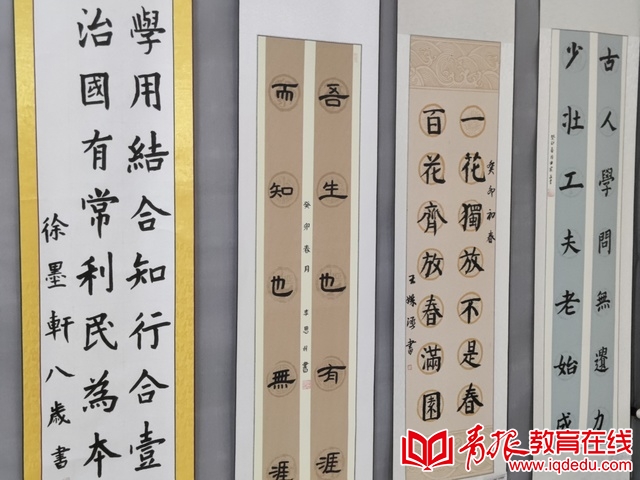 學用結合知行合壹
治國有常利民為本
徐墨軒八歲書
吾生也有涯
而知也無涯
癸卯春月
癸卯初春
一花獨放不是春
百花齊放春滿園
古人學問無遺力
少壯工夫老始成
青报教育在线
www.iqdedu.com